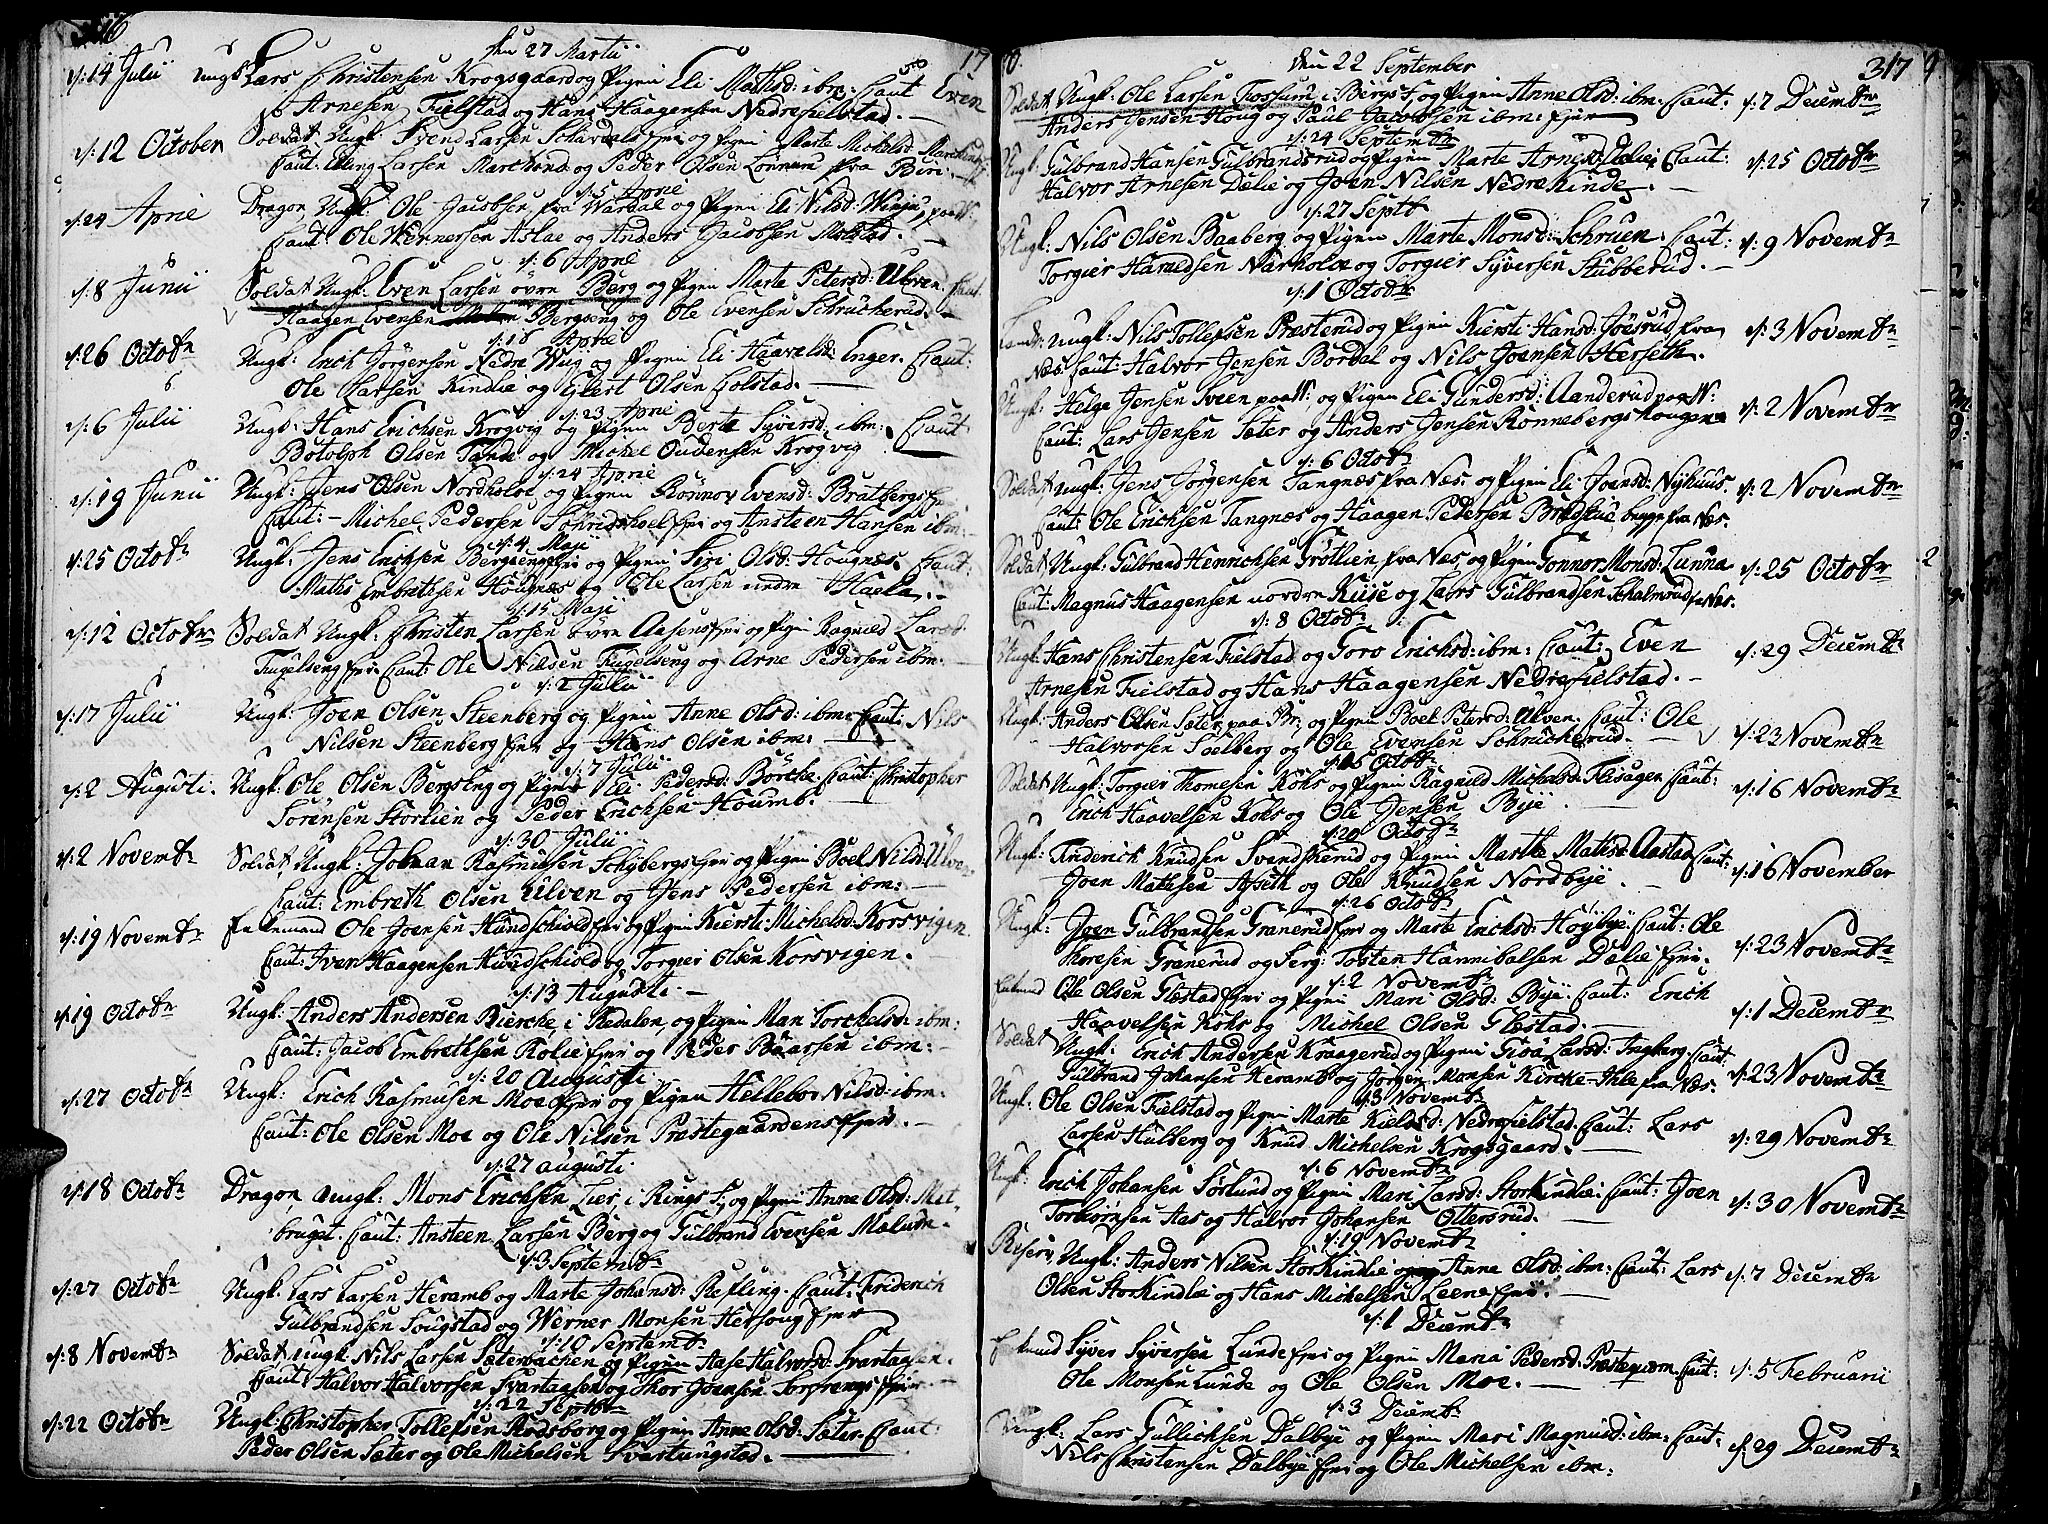 316
den 27 Martii
17
d: 14 Julii Ungk Lars Christensen Krogsgaard og Pigen Eli Mathisd: ibm: Caut: Even
Arnesen Fielstad og Hans Haagensen Nedrefielstad.
d: 12 October Soldat Ungk: Svend Larsen og Pigen Marte Michelsd:
Caut: Elling Larsen og Peder Olsen fra Biri.
d: 5 April
d: 24 April Dragon, Ungk: Ole Jacobsen fra Wardal og Pigen Eli Nilsd:
Caut: Ole Wernersen Aslae og Anders Jacobsen
d: 6 April
d: 8 Junii Soldat Ungk: Even Larsen övre Berg og Pigen Marte Petersd: Ulven. Caut:
Haagen Evensen Bergseng og Ole Evensen Schrucherud.
d: 18 April
d: 26 Octobr Ungk: Erich Jörgensen Nedre og Pigen Eli Haavelsd: Enger. Caut:
Ole Larsen Kindlie og Ejlert Olsen Colstad.
d: 23 April
d: 6 Julii Ungk: Hans Erichsen Krogvig og Pigen Berte Syversd: ibm: Caut
Botolph Olsen Tande og Michel Oudensen Krogvig
d: 24 April
d: 19 Junii Ungk: Jens Olsen Nordholoe og Pigen Rönnov Evensd: Bratbergs
Caut: Michel Pedersen og Ansteen Hansen ibm:
d: 4 Maji
d: 25 Octobr Ungk: Jens Erichsen Bergseng og Pigen Siri Olsd: Hougnæs. Caut:
Mathis Embrethsen Hougnæs og Ole Larsen nedre
d: 15 Maji
d: 12 Octobr Soldat Ungk: Christen Larsen övre og Pigen Ragnild Larsd:
Fugelseng Caut: Ole Nilsen Fugelseng og Arne Pedersen ibm:
d: 2 Julii
d: 17 Julii Ungk: Joen Olsen Steenberg og Pigen Anne Olsd: ibm: Caut: Nils
Nilsen Steenberg og Hans Olsen ibm:
d: 7 Julii
d: 2 Augusti. Ungk: Ole Olsen Bergseng og Pigen Eli Pedersd: Börche. Caut: Christopher
Sörensen Storlien og Peder Erichsen Houmb.
d: 30 Julii
d: 2 Novembr Soldat Ungk: Johnan Rasmusen og Pigen Boel Nilsd: Ulven
Caut: Embreth Olsen Ulven og Jens Pedersen ibm:
d: 19 Novembr Enkemand Ole Joensen Hundschiold og Pigen Kierste Michelsd: Korsvigen
Caut: Iven Haagensen Hundschiold og Torgier Olsen Korsvigen.
d: 13 Augusti
d: 19 Octobr Ungk: Anders Andersen Bierche i Redalen, og Pigen Mari Torchelsd: ibm:
Caut: Jacob Embrethsen Rolie og Peder Baarsen ibm:
d: 20 Augusti
d: 27 Octobr Ungk: Erich Rasmusen Moe og Pigen Hellebor Nilsd: ibm.
Caut: Ole Olsen Moe og Ole Nilsen Prestegaardens
d: 27 augusti
d: 18 Octobr Dragon, Ungk: Mons Erichsen Lier, i og Pigen Anne Olsd: Met
bruget. Caut: Ansteen Larsen Berg og Gulbrand Evensen
d: 3 Septembr
d: 27 Octobr Ungk: Lars Larsen Heramb og Marte Johansd: Refling. Caut: Friderich
Gulbrandsen Sougstad og Werner Monsen Hersoug
d: 10 Septembr
d: 8 Novembr Soldat, Ungk: Nils Larsen Sæterbachen og Pigen Aase Halvorsd: Svartaasen
Caut: Halvor Halvorsen Svartaasen og Thor Joensen
d: 22 Septbr
d: 22 Octobr Ungk: Christopher Tollefsen Rodsborg og Pigen Anne Olsd: Sæter. Caut:
Peder Olsen Sæter og Ole Michelsen Svartungstad.
den 22 September 317
Soldat Ungk: Ole Larsen Fossum i og Pigen Anne Olsd: ibm: Caut: d: 7 Decembr
Anders Jensen Houg og Paul Jacobsen ibm:
d: 24 Septembr
Ungk: Gulbrand Hansen Gulbrandsrud og Pigen Marte Arnesd: Dælie Caut: d: 25 Octobr
Halvor Arnesen Dælie og Joen Nilsen Nedrekinde
d: 27 Septb
Ungk: Nils Olsen Baaberg og Pigen Marte Monsd: Schruen. Caut: d: 9 Novembr
Torgier Haraldsen Nærholoe og Torgier Syversen Stubberud.
d: 1 Octobr
Ungk: Nils Tollefsen Præsterud og Pigen Kiersti Hansd: Joisrud fra d: 3 Novembr
Næs. Caut: Halvor Jensen Bordal og Nils Joensen Herseth.
Ungk: Helge Jensen Sveen paa W: og Pigen Eli Gundersd: Aanderud paa W: d: 2 Novembr
Caut: Lars Jensen Sæter og Anders Jensen Rønnebergshougen
d: 6 Octobr
Soldat Ungk: Jens Jörgensen Tangnes fra Næs. og Pigen Eli Joensd: Nyhuus. d: 2 Novembr
Caut: Ole Erichsen Tangnæs og Haagen Pedersen begge fra Næs.
Soldat Ungk: Gulbrand Henrichsen Grötlien fra Næs, og Pigen Gonnor Monsd: Lunna d: 25 Octobr
Caut: Magnus Haagensen nordre Kise og Lars Gulbrandsen Schalmrud Næs.
d: 8 Octobr
Ungk: Hans Christensen Fielstad og Goro Erichsd: ibm: Caut: Even d: 29 Decembr
Arnesen Fielstad og Hans Haagensen Nedrefielstad.
Ungk: Anders Olsen Sæter paa Br: og Pigen Boel Petersd: Ulven. Caut: Ole d: 23 Novembr
Halvorsen Soelberg og Ole Evensen Schrucherud.
d: 15 Octobr
Soldat Ungk: Torgier Thomesen Kohs og Pigen Ragnild Michelsd: Flisagen Caut: d: 16 Novembr
Erich Haavelsen Kohs og Ole Jensen Bye
d: 20 Octobr
Ungk: Friderich Knudsen Svendskerud og Pigen Marthe Mathisd: Aastad Caut: d: 16 November
Joen Mathisen Afseth og Ole Knudsen Nordbye.
d: 26 Octobr
Ungk: Joen Gulbrandsen Granerud og Marte Erichsd: Högbye Caut: Ole d: 23 Novembr
Thoresen Granerud og Serg: Tosten Hannibalsen Dælie
d: 2 Novembr
Enkmd Ole Olsen Glæstad og Pigen Mari Olsd: Bye Caut: Erich d: 1 Decembr
Haavelsen Kohs og Michel Olsen Glæstad.
Soldat Ungk: Erich Andersen Kraagerud og Pigen Gioa Larsd: Ingberg. Caut: d: 23 Novembr
Gulbrand Johansen Heramb og Jörgen Monsen Kircke-Ihle fra Næs.
d: 3 Novembr
Ungk: Ole Olsen Fielstad og Pigen Marte Kieldsd: Nedrefielstad. Caut: Lars d: 29 Novembr
Larsen Hulberg og Knud Michelsen Krogsgaard.
d: 6 Novembr
Ungk: Erich Johansen Sörlund og Pigen Mari Larsd: Storkindlie Caut: Joen d: 30 Novembr
Torbiörnsen Aas og Halvor Johansen Ottersrud.
d: 19 Novembr
Reserv, Ungk: Anders Nilsen Storkindlie Anne Olsd: ibm: Caut: Lars d: 7 Decembr
Olsen Storkindlie og Hans Michelsen Leene
d: 1 Decembr
Enkmd Syver Syversen Lunde og Pigen Maria Pedersd: Caut: d: 5 Februarii
Ole Monsen Lunde og Ole Olsen Moe.
d: 3 Decembr
Ungk: Lars Gullichsen Dalbye og Pigen Mari Magnusd: ibm: Caut: d: 29 Decembr
Nils Christensen Dalbye og Ole Michelsen ibm: